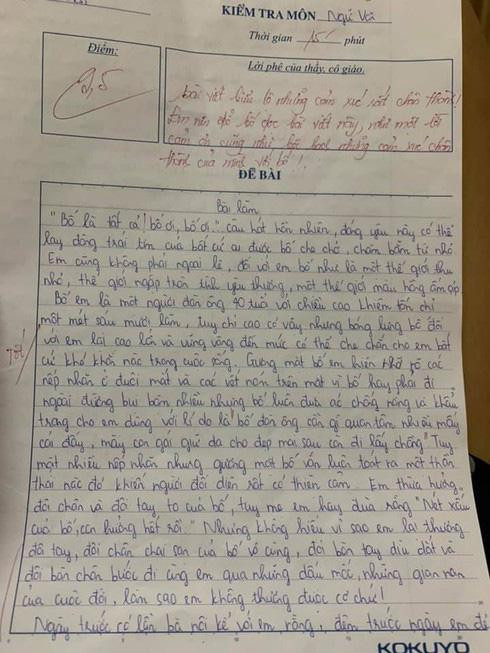 KIỂM TRA MÔN Ngữ Văn
Thời gian 15' phút
Điểm:
Lời phê của thầy, cô giáo.
9,5
bài viết bộc lộ những cảm xúc rất chân thành!
Em nên để bố đọc bài viết này, như một lời
cảm ơn cũng như bộc bạch những cảm xúc chân
thành của mình với bố!
ĐỀ BÀI
Bài làm
"Bố là tất cả! bố ơi, bố ơi." câu hát hồn nhiên, đáng yêu này có thể
lay động trái tim của bất cứ ai được bố che chở, chăm bẵm từ nhỏ
Em cũng không phải ngoại lệ, đối với em bố như là một thế giới thu
nhỏ, thế giới ngập tràn tình yêu thương, một thế giới màu hồng ấm áp
Bố em là một người đàn ông 40 tuổi với chiều cao khiêm tốn chỉ
một mét sáu mươi lăm, tuy chỉ cao có vậy nhưng bóng lưng bố đối
Tốt!
với em lại cao lớn và vững vàng đến mức có thể che chắn cho em bất
cứ khó khăn nào trong cuộc sống. Gương mặt bố em hiện rõ các
nếp nhăn ở đuôi mắt và các vết nám trên mặt vì bố hay phải đi
ngoài đường bụi bặm nhiều nhưng bố luôn đưa áo chống nắng và khẩu
trang cho em dùng với lí do là "bố đàn ông cần gì quan tâm nhiều mấy
cái đấy, mày con gái giữ da cho đẹp mai sau còn đi lấy chồng" Tuy
mặt nhiều nếp nhăn nhưng gương mặt bố vẫn luôn toát ra một thần
thái nào đó khiến người đối diện rất có thiện cảm. Em thừa hưởng
đôi chân và đôi tay to của bố, tuy mẹ em hay đùa rằng "Nét xấu
của bố, con hưởng hết rồi." Nhưng không hiểu vì sao em lại thương
đôi tay, đôi chân chai sạn của bố vô cùng, đôi bàn tay dìu dắt và
đôi bàn chân bước đi cùng em qua những dấu mốc, những gian nan
của cuộc đời, làm sao em không thương được cơ chứ!
Ngày trước có lần bà nội kể với em rằng, đêm trước ngày em đẻ
KOKUYO